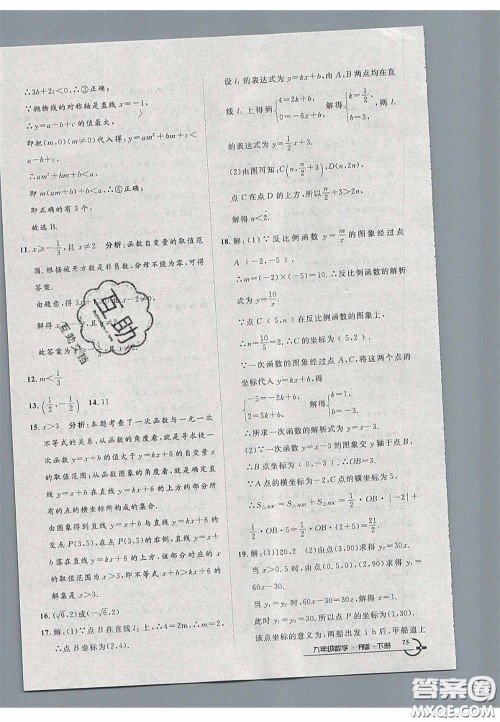 ∴3b+2c<0,∴③正确;
∵抛物线的对称轴是直线 x=−1,
∴y=a−b+c 的值最大,
即把(m,0)(m≠0)代入得:y=am²+bm+c
<a−b+c,
∴am²+bm+b<a,
即 m(am+b)+b<a,∴④正确;
即正确的有3个,
故选B.
11. x≥−1/3,且 x≠2 分析:函数自变量的取值范
围.根据被开方数是非负数,分母不能为零,可得
答案.
由题意,得 3
解得
故答案为
12. m<1/3
13. (1/2,−1/2) 14. 11
15. x>3 分析:本题考查了一次函数与一元一次
不等式的关系;从函数的角度看,就是寻求使一
次函数 y=ax+b 的值大于(或小于)0的自变量 x
的取值范围;从函数图象的角度看,就是确定直
线 y=x+b 在直线 y=kx+6 的上方的部分所
有的点的横坐标所构成的集合.
由图象得到直线 y=x+b 与直线 y=kx+6 的
交点 P(3,5),在点 P(3,5)的右侧,直线 y=x+
b 落在直线 y=kx+6 的上方,该部分对应的 x
的取值范围为 x>3,即不等式 x+b>kx+6 的
解集是 x>3.
16. (√6,2)或(−√6,2)
17. 解:(1)∵点 B 在直线 l₂ 上,∴4=2m,∴m=
2,∴点 B 的坐标为(2,4).
设 l₁ 的表达式为 y=kx+b,由 A,B 两点均在直
线 l₁ 上得到{4=2k+b, 0=−6k+b, 解得{k=1/2, b=3, 则 l₁
的表达式为 y=1/2x+3.
(2)由图可知:C(n,n/2+3),D(n,2n),
点 C 在点 D 的上方,所以 n/2+3>2n,
解得 n<2.
18. 解:(1)∵反比例函数 y=m/x 的图象经过点
A(−2,−5),
∴m=(−2)×(−5)=10.∴反比例函数的解析
式为 y=10/x.
∵点 C(5,n)在反比例函数的图象上,
∴n=10/5=2.∴C 的坐标为(5,2).
∵一次函数的图象经过点 A,C,将这两个点的
坐标代入 y=kx+b,得
{−5=−2k+b, 2=5k+b, 解得{k=1, b=−3,
∴所求一次函数的解析式为 y=x−3.
(2)∵一次函数 y=x−3 的图象交 y 轴于点 B,
∴B 点坐标为(0,−3).∴OB=3.
∵A 点的横坐标为−2,C 点的横坐标为5,
∴S△AOC=S△AOB+S△BOC=1/2·OB·|−2|+
1/2·OB·5=1/2·OB·(2+5)=21/2.
19. 解:(1)120,2 (2)由点(3,90)求得 y₂=30x.
当 x>0.5 时,由点(0.5,0),(2,90)求得 y₁=
60x−30.
当 y₁=y₂ 时,60x−30=30x,解得 x=1.
此时 y₁=y₂=30,所以点 P 的坐标为(1,30).
该点坐标的意义为:两船出发 1 h 后,甲船追上
九年级数学·R版·下册
75
互助
互助文档
答案圈
MXQE.COM